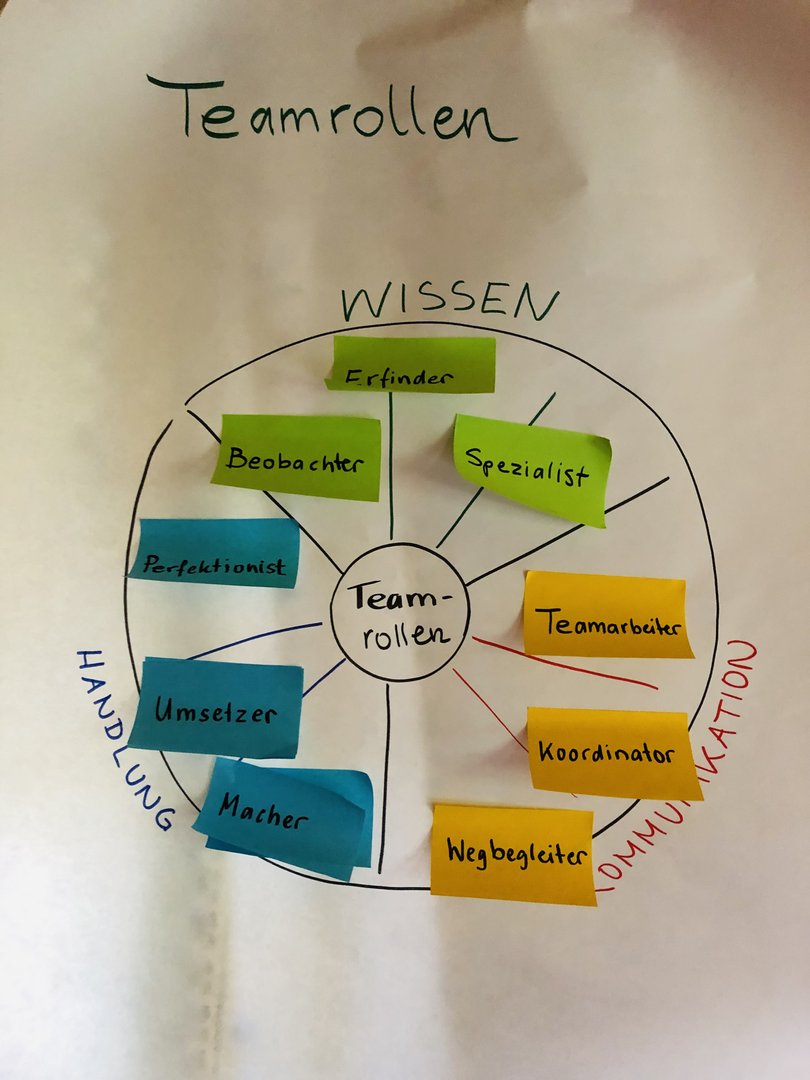 Teamrollen
WISSEN
Erfinder
Beobachter
Spezialist
Perfektionist
Team-
rollen
Teamarbeiter
Umsetzer
Koordinator
Macher
Wegbegleiter
HANDLUNG
KOMMUNIKATION